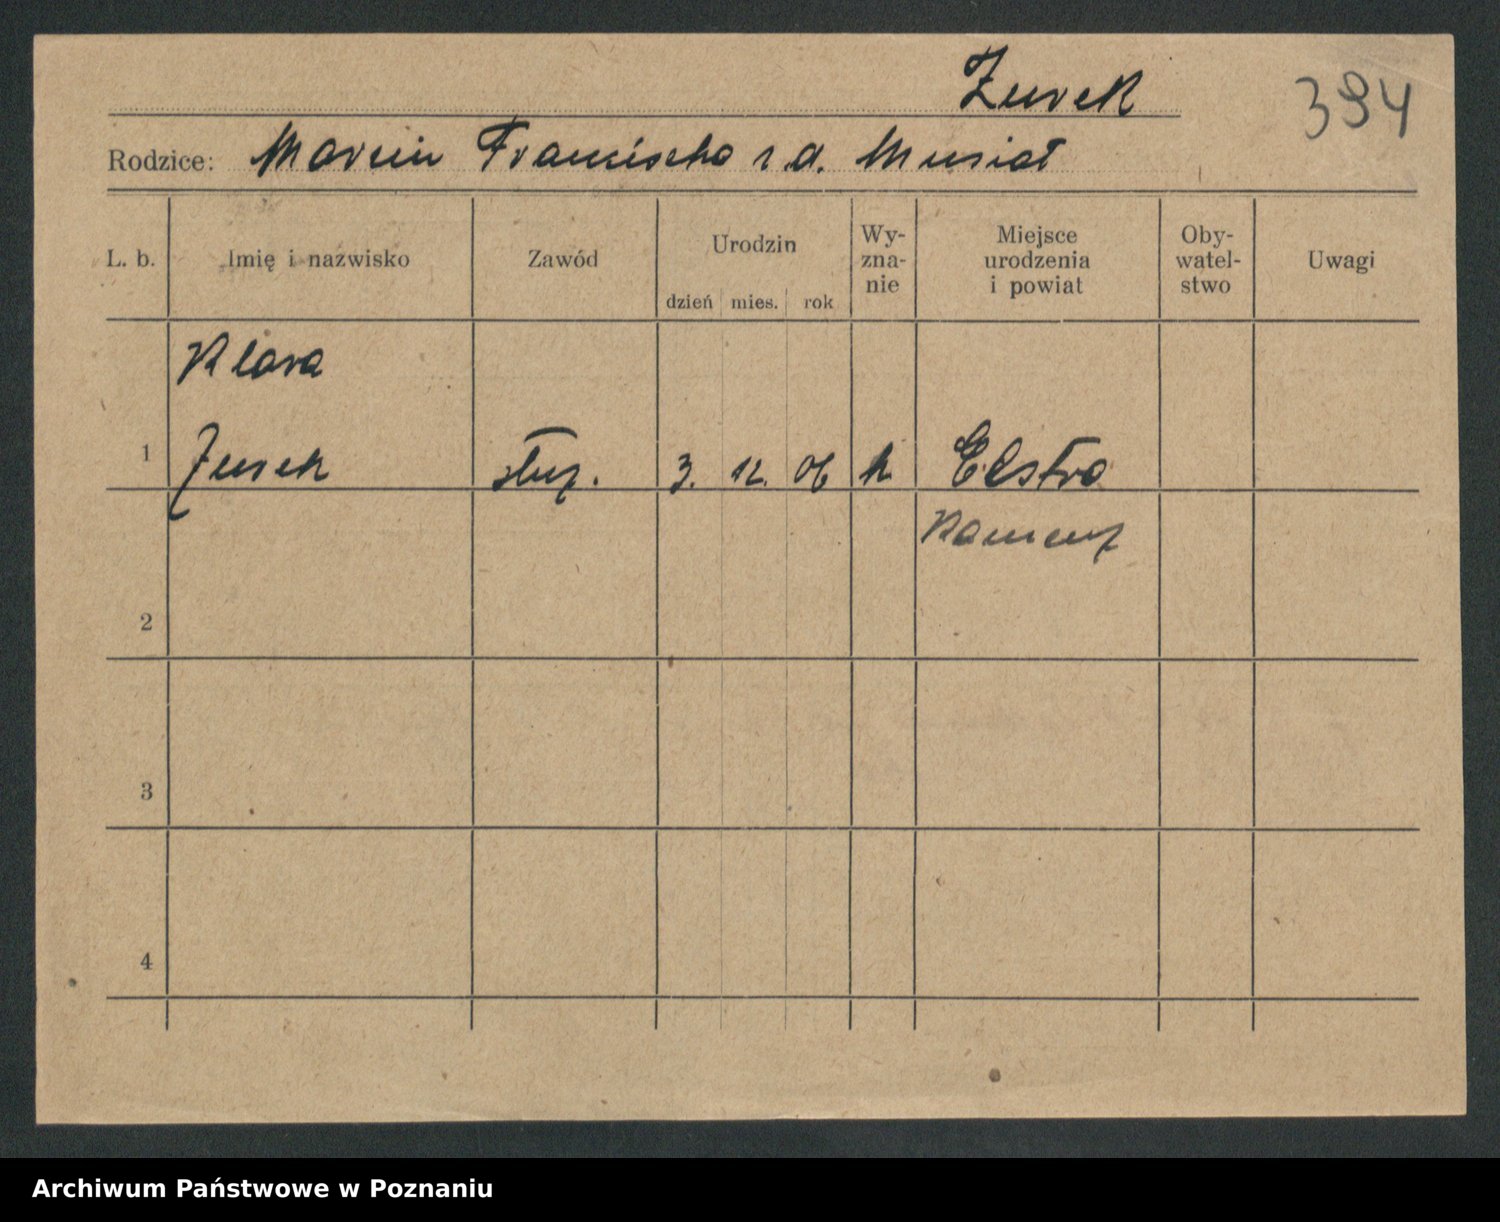 Zurek
394
Rodzice: Marcin Franciszka z d. Musiał
L. b. Imię i nazwisko Zawód Urodzin dzień mies. rok Wy-zna-nie Miejsce urodzenia i powiat Oby-watel-stwo Uwagi
Klara
1 Zurek służ. 3. 12. 06 k Elstra
Kamenz
2
3
4
Archiwum Państwowe w Poznaniu